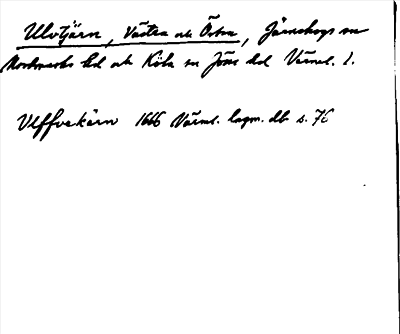 Ulvtjärn, Västra och Östra, Järnskogs sn
Nordmarks hd och Köla sn Jösse hd Värml. l.
Ulffvekärn 1666 Värml. lagm. db. s. 76